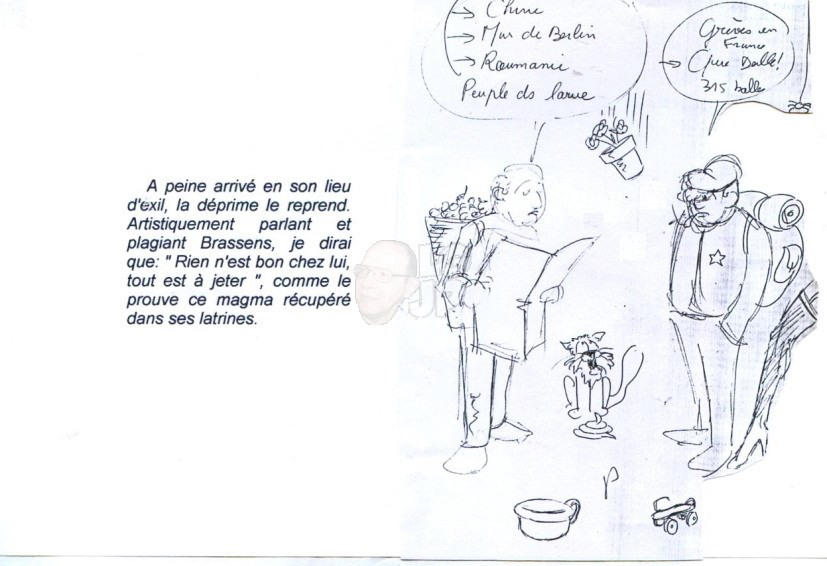 A peine arrivé en son lieu
d'exil, la déprime le reprend.
Artistiquement parlant et
plagiant Brassens, je dirai
que: " Rien n'est bon chez lui,
tout est à jeter ", comme le
prouve ce magma récupéré
dans ses latrines.
→ Chine
→ Mur de Berlin
→ Roumanie
Peuple ds larue
Grèves en
France
→ Que Dalle!
315 balles